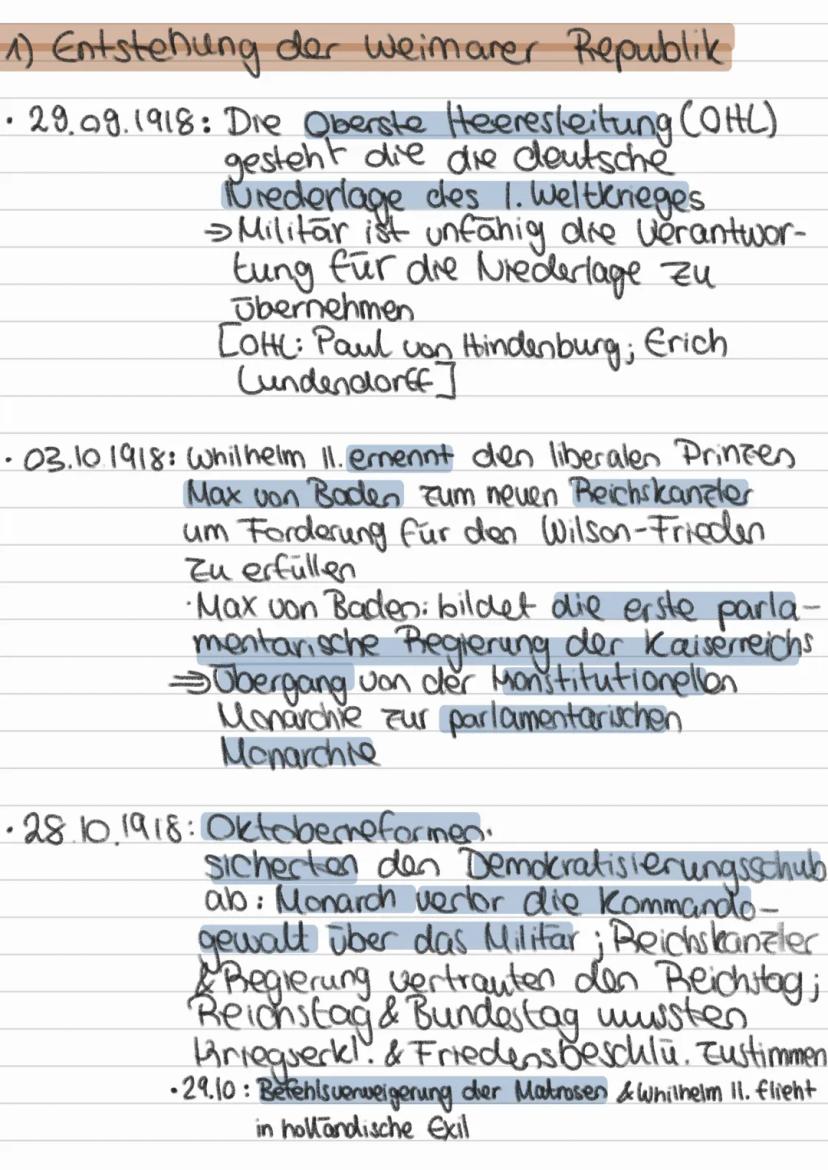 1) Entstehung der Weimarer Republik
· 29.09.1918: Die Oberste Heeresleitung (OHL)
gesteht die die deutsche
Niederlage des 1. Weltkrieges
⇒ Militär ist unfähig die Verantwor-
tung für die Niederlage zu
übernehmen
[OHL: Paul von Hindenburg; Erich
Lundendorff]
· 03.10.1918: Whilhelm II. ernennt den liberalen Prinzen
Max von Baden zum neuen Reichskanzler
um Forderung für den Wilson-Frieden
zu erfüllen
· Max von Baden: bildet die erste parla-
mentarische Regierung der Kaiserreichs
⇒ Übergang von der Konstitutionellen
Monarchie zur parlamentarischen
Monarchie
· 28.10.1918: Oktoberreformen.
sicherten den Demokratisierungsschub
ab: Monarch verlor die Kommando-
gewalt über das Militär; Reichskanzler
& Regierung vertrauten den Reichstag;
Reichstag & Bundestag mussten
Kriegserkl. & Friedensbeschlü. zustimmen
· 29.10: Befehlsverweigerung der Matrosen & Whilhelm II. flieht
in holländische Exil